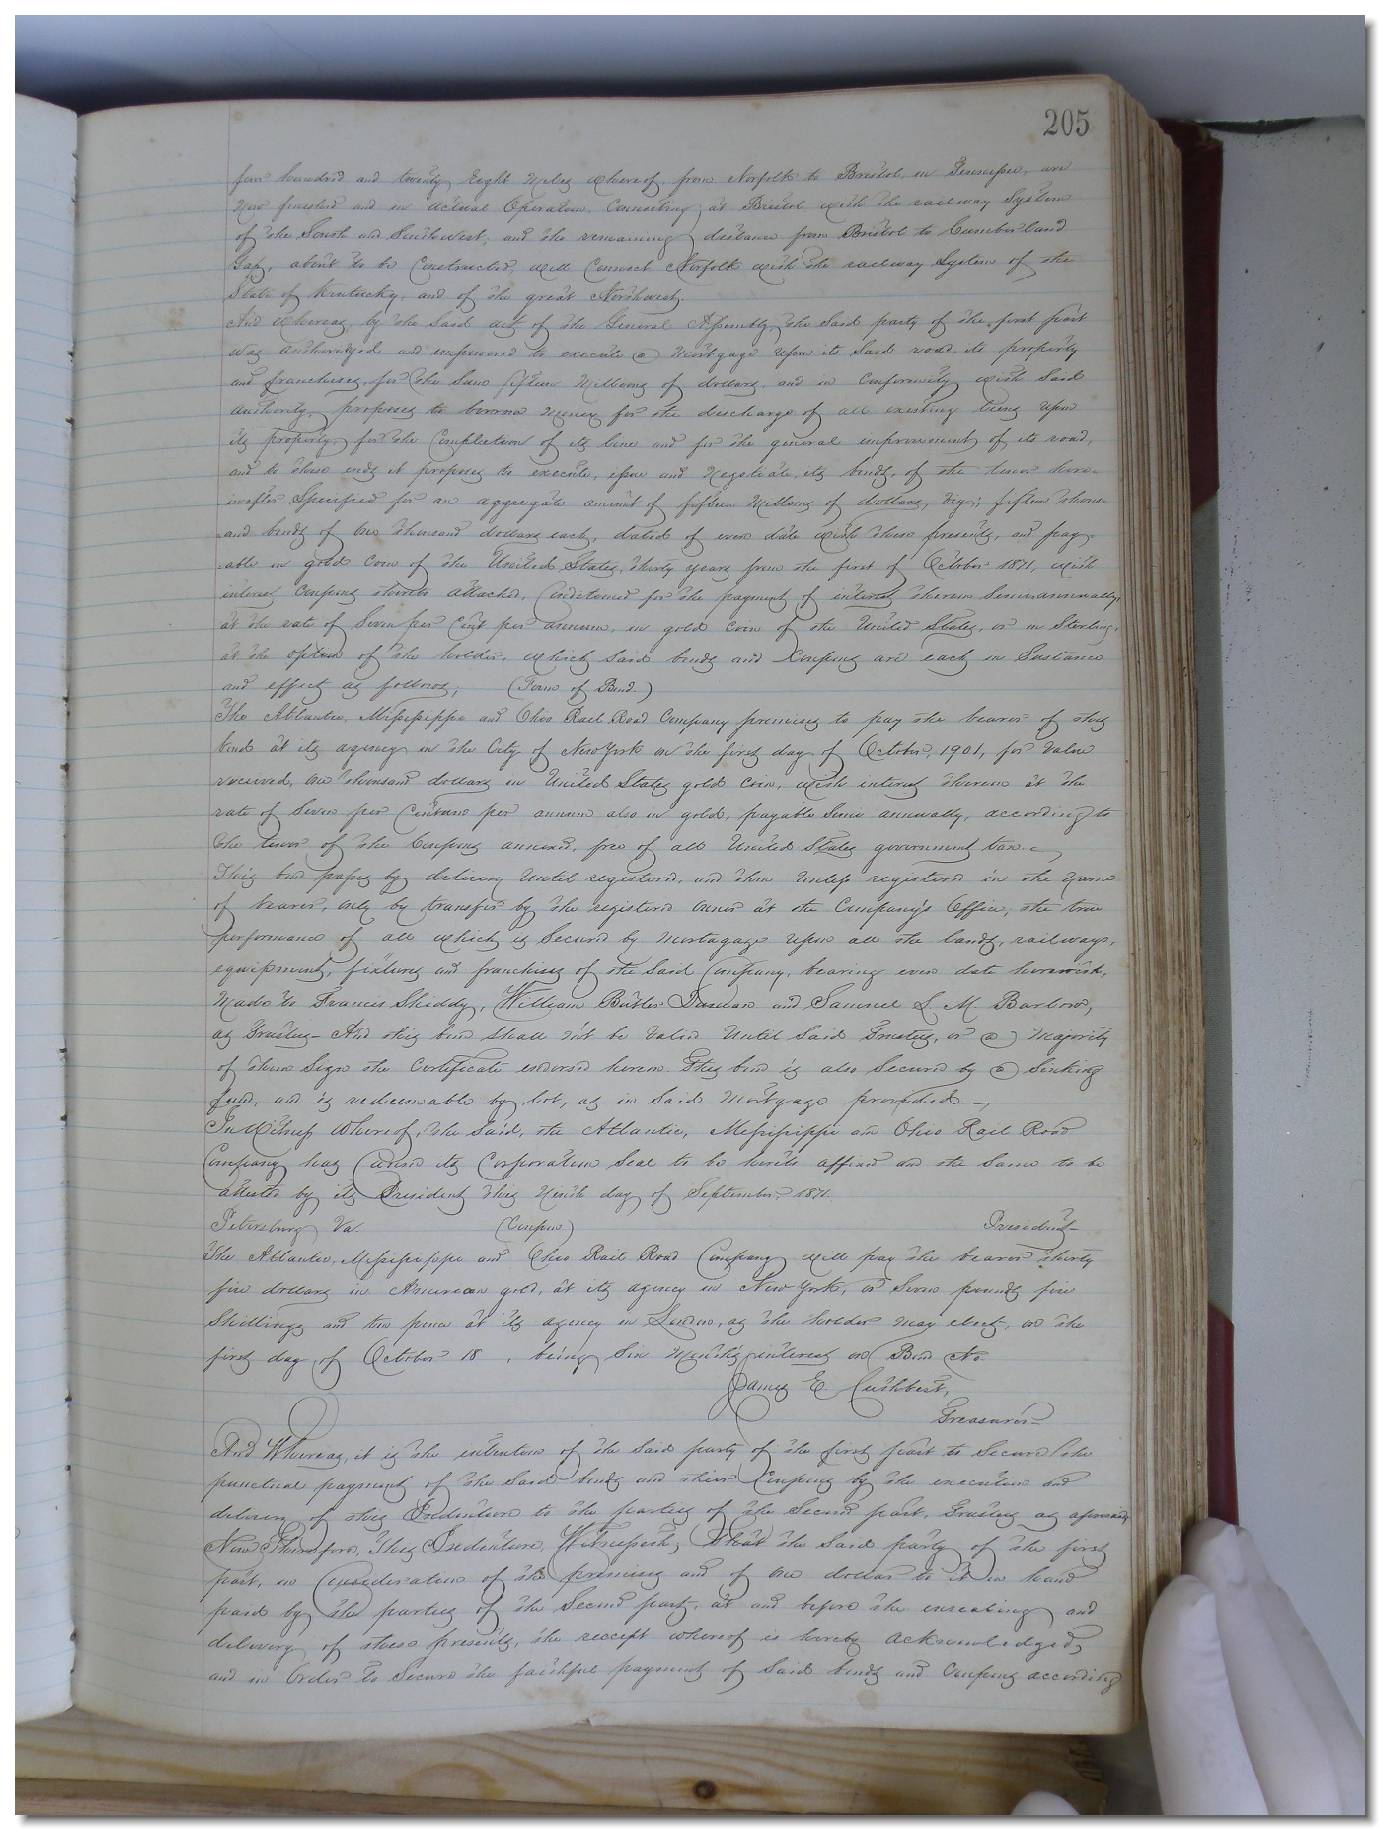 205
four hundred and twenty Eight Miles whereof, from Norfolk to Bristol, in Tennessee, are
now finished and in actual Operation, Connecting at Bristol with the railway System
of the South and Southwest, and the remaining distance from Bristol to Cumberland
Gap, about to be Constructed, will Connect Norfolk with the railway System of the
State of Kentucky, and of the great Northwest.
And Whereas, by the Said act of the General Assembly, the Said party of the first part
was authorized and empowered to execute a Mortgage upon its Said road its property
and franchises, for the Sum fifteen Millions of dollars, and in Conformity with Said
authority, proposes to borrow Money for the discharge of all existing liens upon
its property, for the Completion of its line and for the general improvement of its road,
and to these ends it proposes to execute, issue and Negotiate, its bonds, of the tenor here-
-inafter Specified for an aggregate amount of fifteen Millions of dollars, viz; fifteen thous-
-and bonds of One thousand dollars each, dated of even date with these presents, and pay-
-able in gold Coin of the United States, thirty years from the first of October 1871, with
interest Coupons thereto attached, Conditioned for the payment of interest thereon Semiannually,
at the rate of Seven per Cent per annum, in gold Coin of the United States, or in Sterling,
at the option of the holder, which Said bonds and Coupons are each in Sustance
and effect as follows, (Form of Bond.)
The Atlantic, Mississippi and Ohio Rail Road Company promises to pay the bearer of this
bond at its agency in the City of New York on the first day of October, 1901, for value
received, One thousand dollars in United States gold Coin, with interest thereon at the
rate of Seven per Centum per annum also in gold, payable Semi annually, according to
the tenor of the Coupons annexed, free of all United States government tax.
This bond passes by delivery Until registered, and then Unless registered in the Name
of bearer, only by transfer by the registered Owner at the Company's Office, the true
performance of all which is Secured by Mortagage upon all the lands, railways,
equipment, fixtures and franchises of the Said Company, bearing even date herewith,
Made to Francis Skiddy, William Butler Duncan and Samuel L. M. Barlow,
as Trustees - And this bond Shall Not be Valid Until Said Trustees, or a Majority
of them Sign the Certificate endorsed hereon. This bond is also Secured by a Sinking
fund, and is redeemable by lot, as in Said Mortgage provided -,
In Witness Whereof, the Said, the Atlantic, Mississippi and Ohio Rail Road
Company has Caused its Corporation Seal to be hereto affixed and the Same to be
attested by its President this Ninth day of September, 1871.
Petersburg Va. (Coupon) President
The Atlantic, Mississippi and Ohio Rail Road Company will pay the bearer thirty
five dollars in American gold, at its agency in New York, or Seven pounds five
Shillings and ten pence at its agency in London, as the holder may elect, on the
first day of October 18 , being Six Months interest on Bond No.
James E. Cuthbert,
Treasurer
And Whereas, it is the intention of the Said party of the first part to Secure the
punctual payment of the Said bonds and their Coupons by the execution and
delivery of this Indenture to the parties of the Second part, Trustees as aforesaid,
Now Therefore, This Indenture, Witnesseth, That the Said party of the first
part, in Consideration of the premises and of One dollar to it in hand
paid by the parties of the Second part, at and before the ensealing and
delivery of these presents, the receipt whereof is hereby acknowledged,
and in Order to Secure the faithful payment of Said bonds and Coupons according